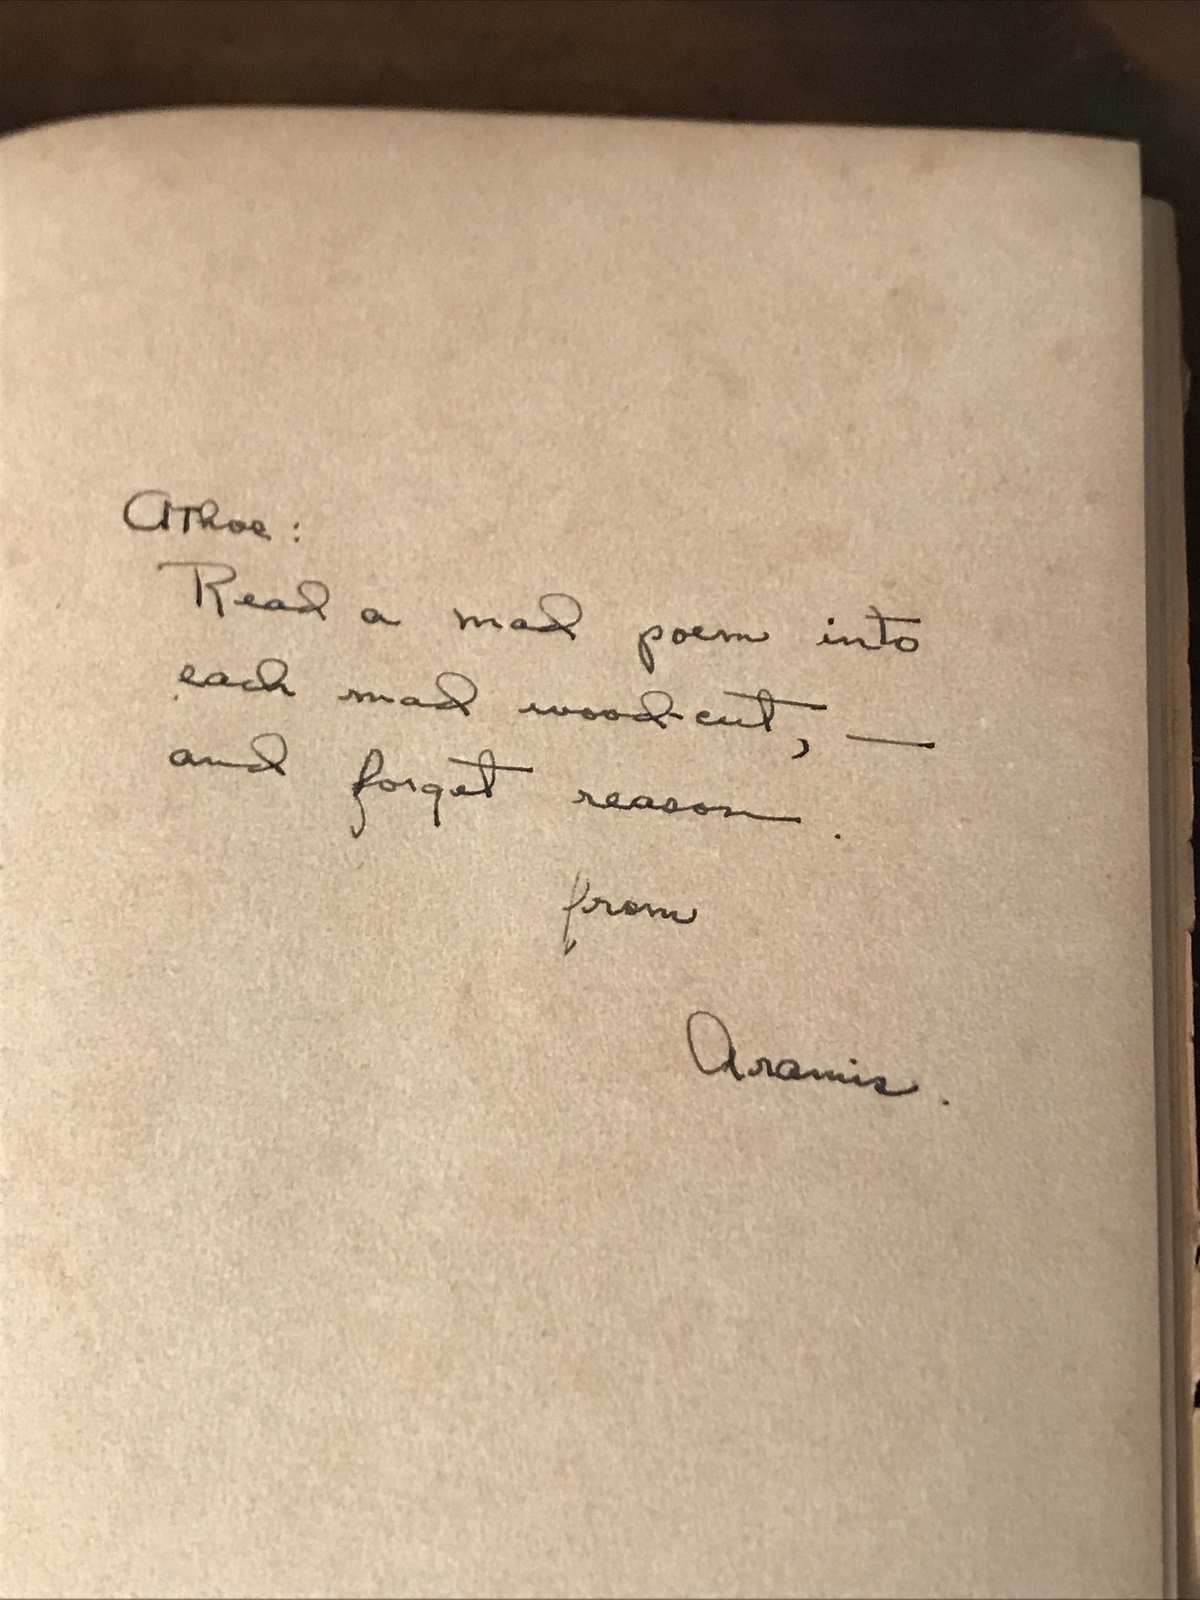 Athos:
Read a mad poem into
each mad wood-cut, —
and forget reason.
from
Aramis.